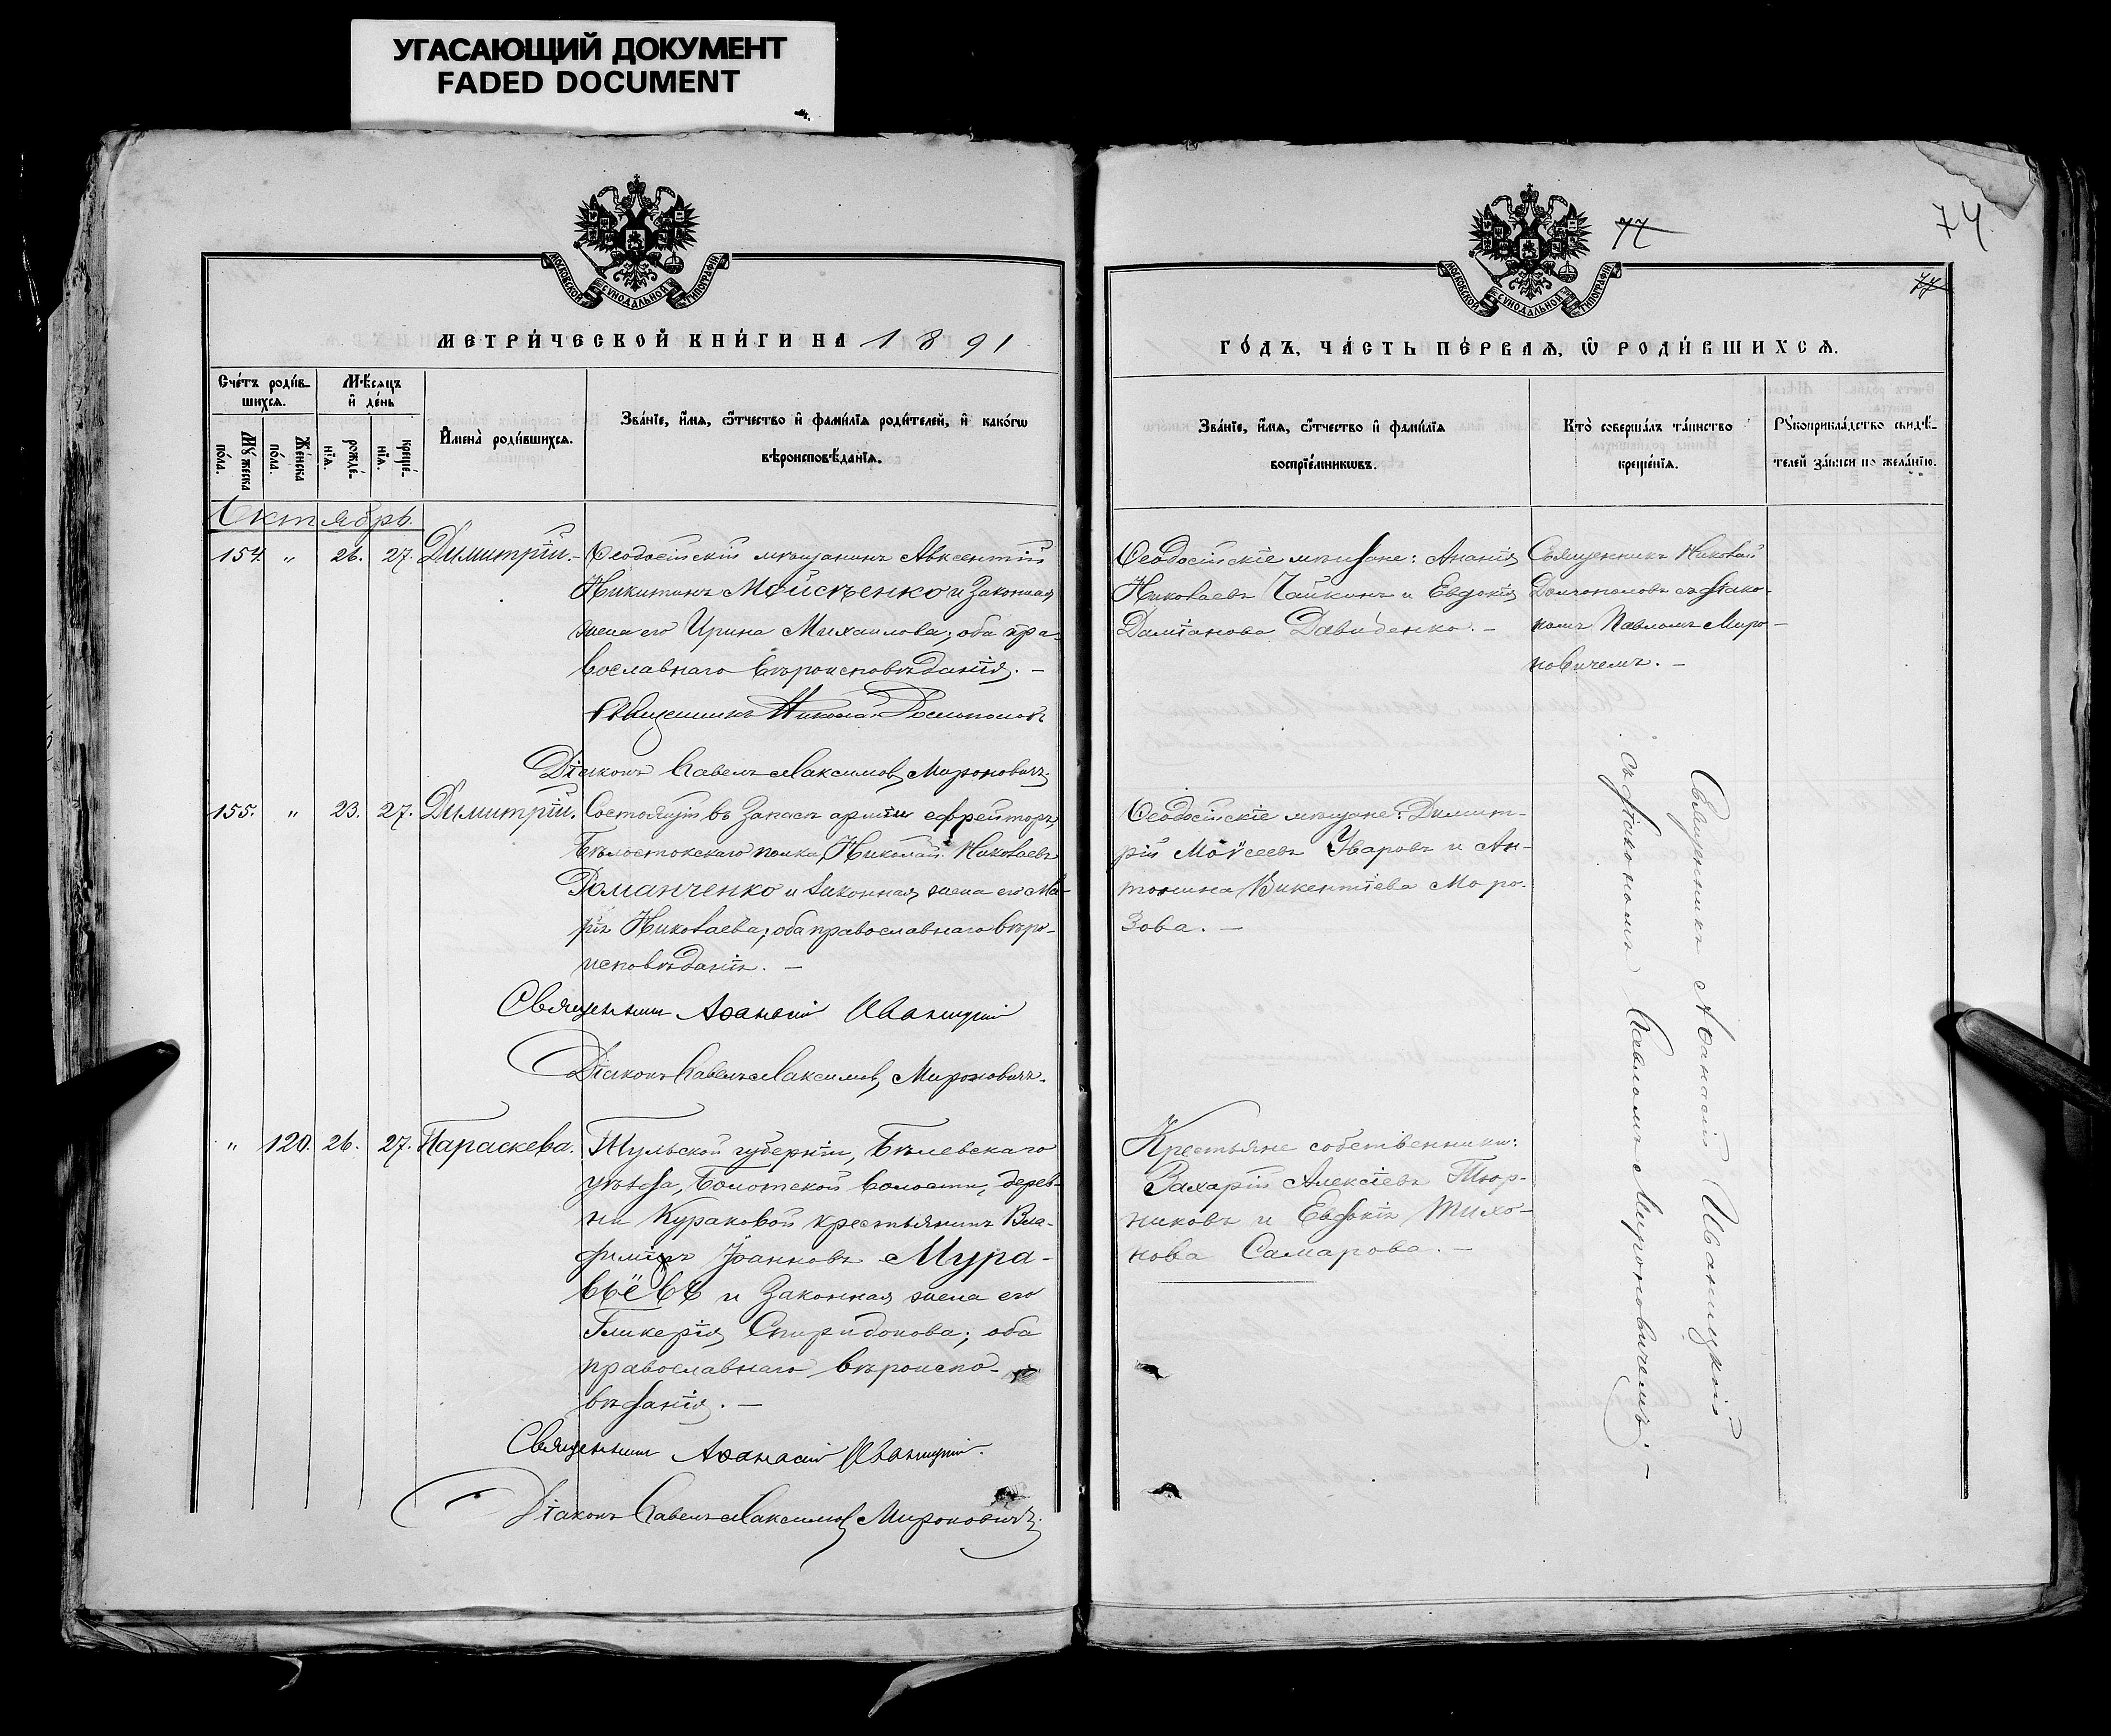 УГАСАЮЩИЙ ДОКУМЕНТ
FADED DOCUMENT
МОСКОВСКОЙ СѴНОДАЛЬНОЙ ТИПОГРАФІИ
МЕТРИ́ЧЕСКОЙ КНИ́ГИ НА 1891
Сче́тъ роди́в-
шихсѧ.
Мѣ́сѧцъ
и҆ де́нь
Мꙋ́жеска
по́ла.
Же́нска
по́ла.
рожде́-
нїѧ.
креще́-
нїѧ.
И҆мена̀ роди́вшихсѧ.
Зва́нїе, и҆́мѧ, ѻ҆́тчество и҆ фами́лїѧ роди́телей, и҆ како́гѡ
вѣроисповѣ́данїѧ.
Октябрь.
154. " 26. 27. Димитрій.
Ѳеодосійскій мѣщанинъ Авксентій
Никитинъ Мойсѣенко и законная
жена его Ирина Михаилова; оба пра-
вославнаго вѣроисповѣданія. —
Священникъ Николай Долгополовъ
Діаконъ Павелъ Максимов Мироновичъ.
155. " 23. 27. Димитрій.
Состоящій въ запасѣ арміи ефрейторъ,
Бѣлостокскаго полка, Николай Николаевъ
Романченко и законная жена его Ма-
рія Николаева; оба православнаго вѣро-
исповѣданія. —
Священник Аѳанасій Иваницкій
Діаконъ Павелъ Максимов Мироновичъ.
" 120. 26. 27. Параскева.
Тульской губерніи, Бѣлевскаго
уѣзда, Болотской волости, дерев-
ни Кураковой крестьянинъ Вла-
диміръ Іоанновъ Мура-
вьёвъ и законная жена его
Гликерія Спиридонова; оба
православнаго вѣроиспо-
вѣданія. —
Священник Аѳанасій Иваницкій.
Діаконъ Павелъ Максимов Мироновичъ.
77
74
77
МОСКОВСКОЙ СѴНОДАЛЬНОЙ ТИПОГРАФІИ
ГО́ДЪ, ЧА́СТЬ ПЕ́РВАѦ, Ѽ РОДИ́ВШИХСѦ.
Зва́нїе, и҆́мѧ, ѻ҆́тчество и҆ фами́лїѧ
воспрїе́мникѡвъ.
Кто̀ соверша́лъ та́инство
креще́нїѧ.
Рꙋкоприкла́дство свидѣ́-
телей за́писи по жела́нїю.
Ѳеодосійскіе мѣщане: Ананія
Николаевъ Чайкинъ и Евдокія
Даміанова Давиденко. —
Священникъ Николай
Долгополовъ съ діако-
номъ Павломъ Миро-
новичемъ. —
Ѳеодосійскіе мѣщане: Димит-
рій Моѵсеевъ Уваровъ и Ан-
тонина Викентіева Моро-
зова. —
Крестьяне собственники:
Захарій Алексіевъ Тюр-
никовъ и Евдокія Тихо-
нова Самарова. —
Священникъ Аѳанасій Иваницкій
съ діакономъ Павломъ Мироновичемъ. —